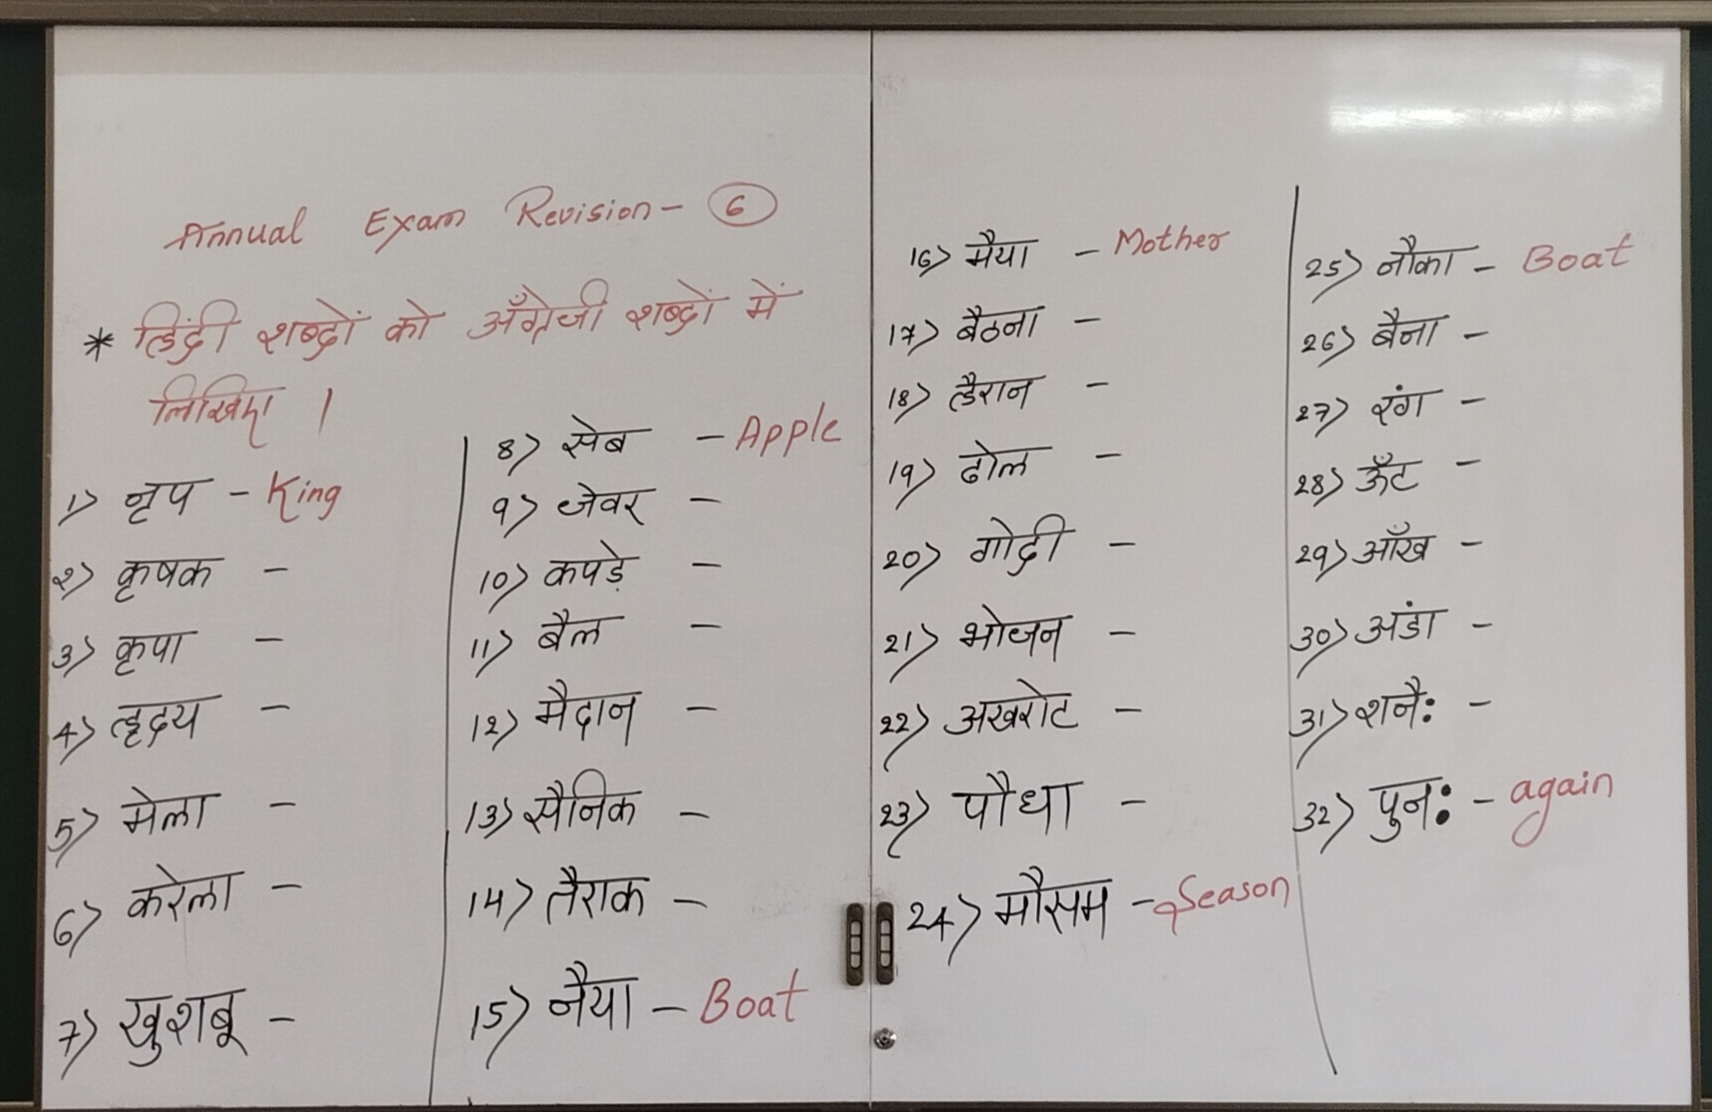 Annual Exam Revision - 6
* हिंदी शब्दों को अँग्रेजी शब्दों में
लिखिए ।
1) नृप - King
2) कृषक -
3) कृपा -
4) हृदय -
5) मेला -
6) करेला -
7) खुशबू -
8) सेब - Apple
9) जेवर -
10) कपड़े -
11) बैल -
12) मैदान -
13) सैनिक -
14) तैराक -
15) नैया - Boat
16) मैया - Mother
17) बैठना -
18) हैरान -
19) ढोल -
20) गोदी -
21) भोजन -
22) अखरोट -
23) पौधा -
24) मौसम - Season
25) नौका - Boat
26) बैना -
27) रंग -
28) ऊँट -
29) आँख -
30) अंडा -
31) शनै: -
32) पुन: - again